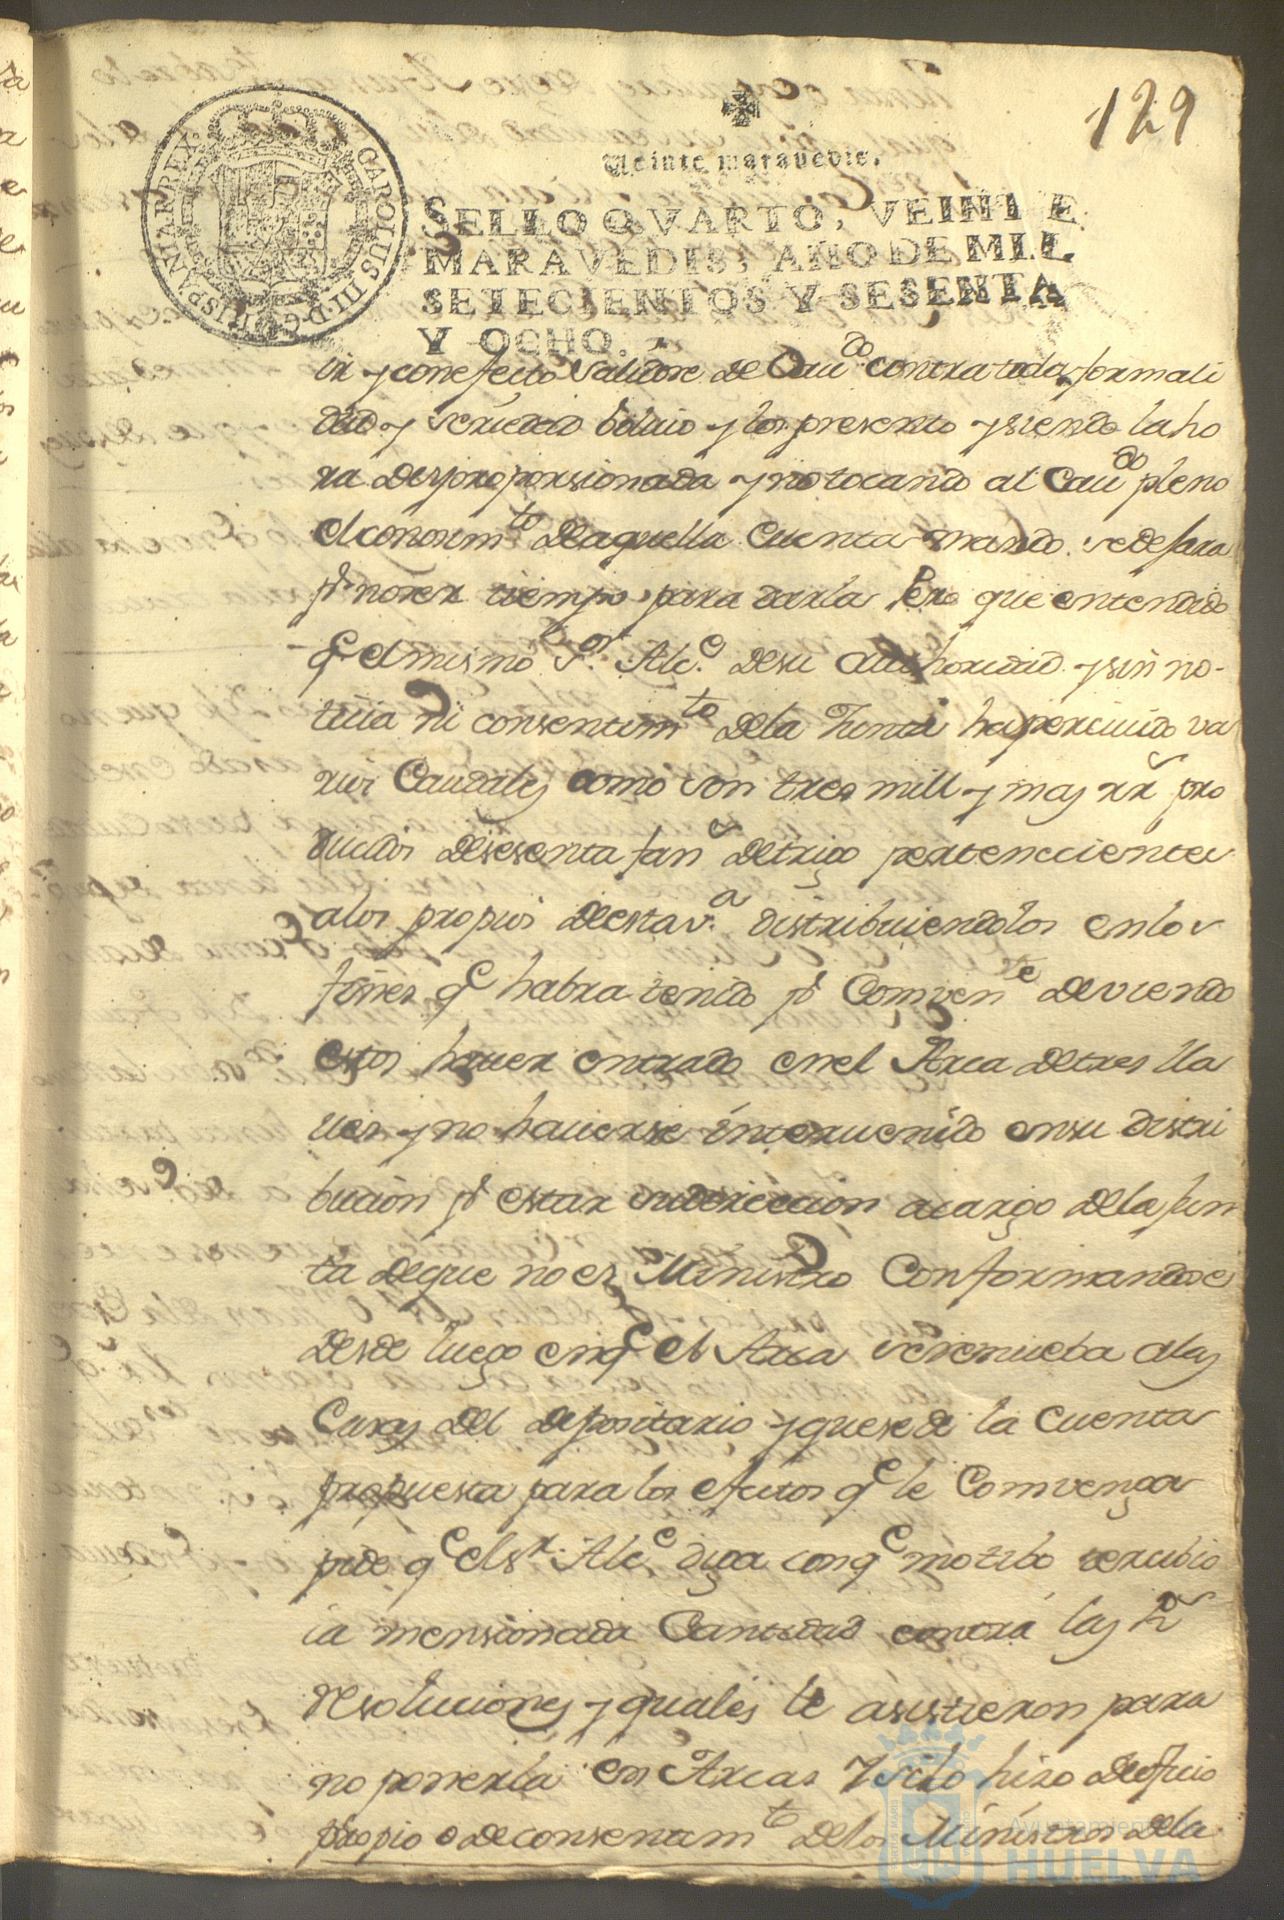 129
Veinte maravedis.
SELLO QVARTO, VEINTE
MARAVEDIS, AÑO DE MIL
SETECIENTOS Y SESENTA
Y OCHO.
CAROLUS III D G HISPANIAR REX
ir y con efecto saliose de Cauᵈᵒ contra toda formali
dad y seriedad bolvio y los presento y siendo la ho
ra desproporsionada y no tocando al Cauᵈᵒ pleno
el conosimᵗᵒ de aquella cuenta mando se dejara
pʳ no ser tiempo para darla Pero que entendido
qᵉ el mismo Sᵒʳ Alcᵉ de su authoridad y sin no-
ticia ni consentimᵗᵒ de la Junta ha persivido va
rios Caudales como son tres mill y mas rrˢ pro
ducidos de sesenta fanˢ de trigo pertenecientes
a los propios de esta vᵃ distribuiendolos en los
fines qᵉ habra tenido pʳ Comvenᵗᵉ deviendo
estos haver entrado en el Arca de tres lla
ves y no haverse intervenido en su distri
bucion pʳ estar su direccion a cargo de la Jun
ta de que no es Ministro Conformandose
desde luego en qᵉ el Arca se remueba a las
Casas del depositario y que se dé la cuenta
propuesta para los efectos qᵉ le Comvenga
pide qᵉ el Sʳ Alcᵉ diga con qᵉ motibo rescibio
la mensionada Cantidad contra las Rˢ
resoluciones y quales le asistieron para
no ponerla en Arcas Y si lo hizo de oficio
propio o de consentimᵗᵒ de los Ministros de la
Ayuntamiento de
HUELVA